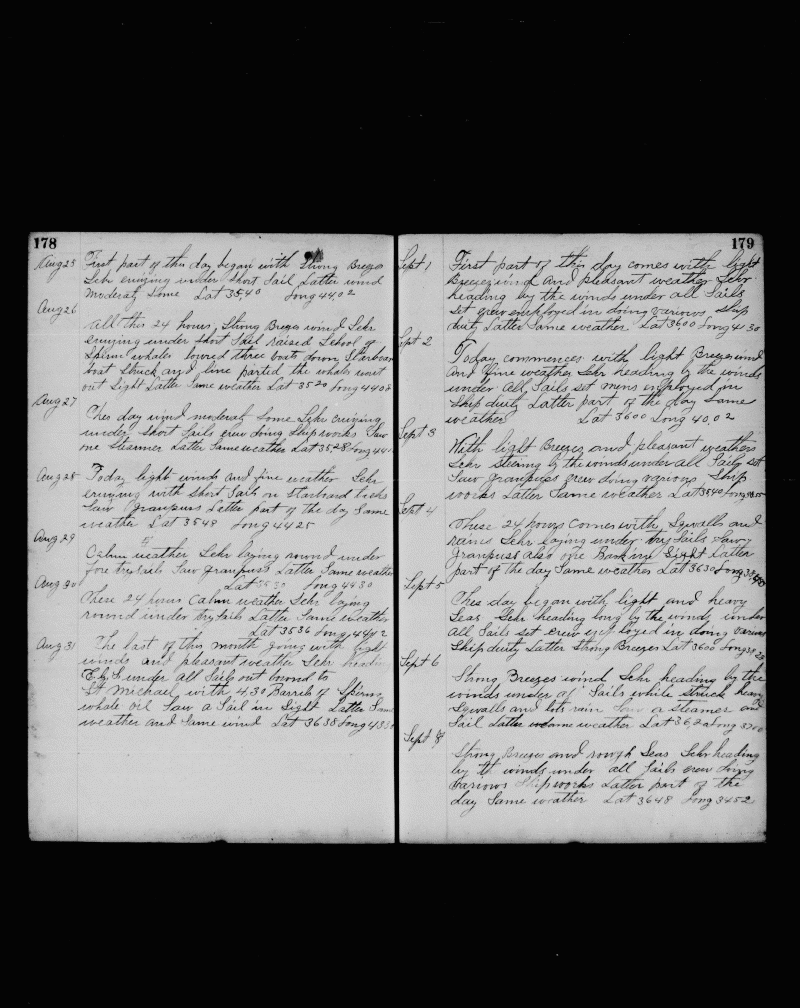 178
Aug 25 First part of this day began with Strong Breezes
Sehr cruizing under Short Sail Latter wind
Moderat Some Lat 35,40 Long 44,02
Aug 26
All this 24 hours, Strong Breezes wind Sehr
cruizing under Short Sail raised School of
Sperm whales lowered three boats down, Starboar
boat Struck and line parted the whales went
out Sight Latter Same weather Lat 35 20 Long 4402
Aug 27
This day wind moderat Some Sehr cruizing
under Short Sails crew doing Ship works Saw
one Steamer Latter Same weather Lat 35,28 Long
Aug 28 Today light winds and fine weather Sehr
cruizing with Short Sails on Starboard tacks
Saw Granpuss Latter part of the day Same
weather Lat 3548 Long 4425
Aug 29
Calm weather Sehr laying round under
fore trysails Saw Granpuss Latter Same weather
Lat 3530 Long 4430
Aug 30
These 24 hours Calm weather Sehr laying
round under try Sails Latter Same weather
Lat 3536 Long 4442
Aug 31 The last of this month going with light
winds and pleasant weather Sehr heading
under all Sails out bound to
St Michael with 430 Barrels of Sperm
whale oil Saw a Sail in Sight Latter Same
weather and Same wind Lat 3638 Long
179
Sept 1 First part of this day comes with light
Breezes wind And Pleasant weather Sehr
heading by the winds under all Sails
Set crew employed in doing various Ship
duty Latter Same weather Lat 3600 Long 4130
Sept 2
Today commences with light Breezes wind
And fine weather Sehr heading by the winds
under All Sails set mens employed in
Ship duty Latter part of the day Same
weather Lat 3600 Long 40,02
Sept 3
With light Breezes and pleasant weathers
Sehr Steering by the winds under all Sails Set
Saw Granpuses crew doing various Ship
works Latter Same weather Lat 3540 Long
Sept 4
These 24 hours Comes with Sqwalls and
rains Sehr laying under try Sails Saw
Granpuss also one Bark in Sight Latter
part of the day Same weather Lat 3630 Long
Sept 5
This day began with light and heavy
Seas Sehr heading long by the winds under
All Sails set crew employed in doing various
Ship duty Latter Strong Breezes Lat 3600 Long
Sept 6
Strong Breezes wind Sehr heading by the
winds under all Sails while Struck heavy
Sqwalls and lots rain Saw a Steamer and
Sail Latter Same weather Lat 36,20 Long
Sept 8
Strong Breezes and rough Seas Sehr heading
by the winds under all Sails crew doing
various Shipworks Latter part of the
day Same weather Lat 3648 Long 3452